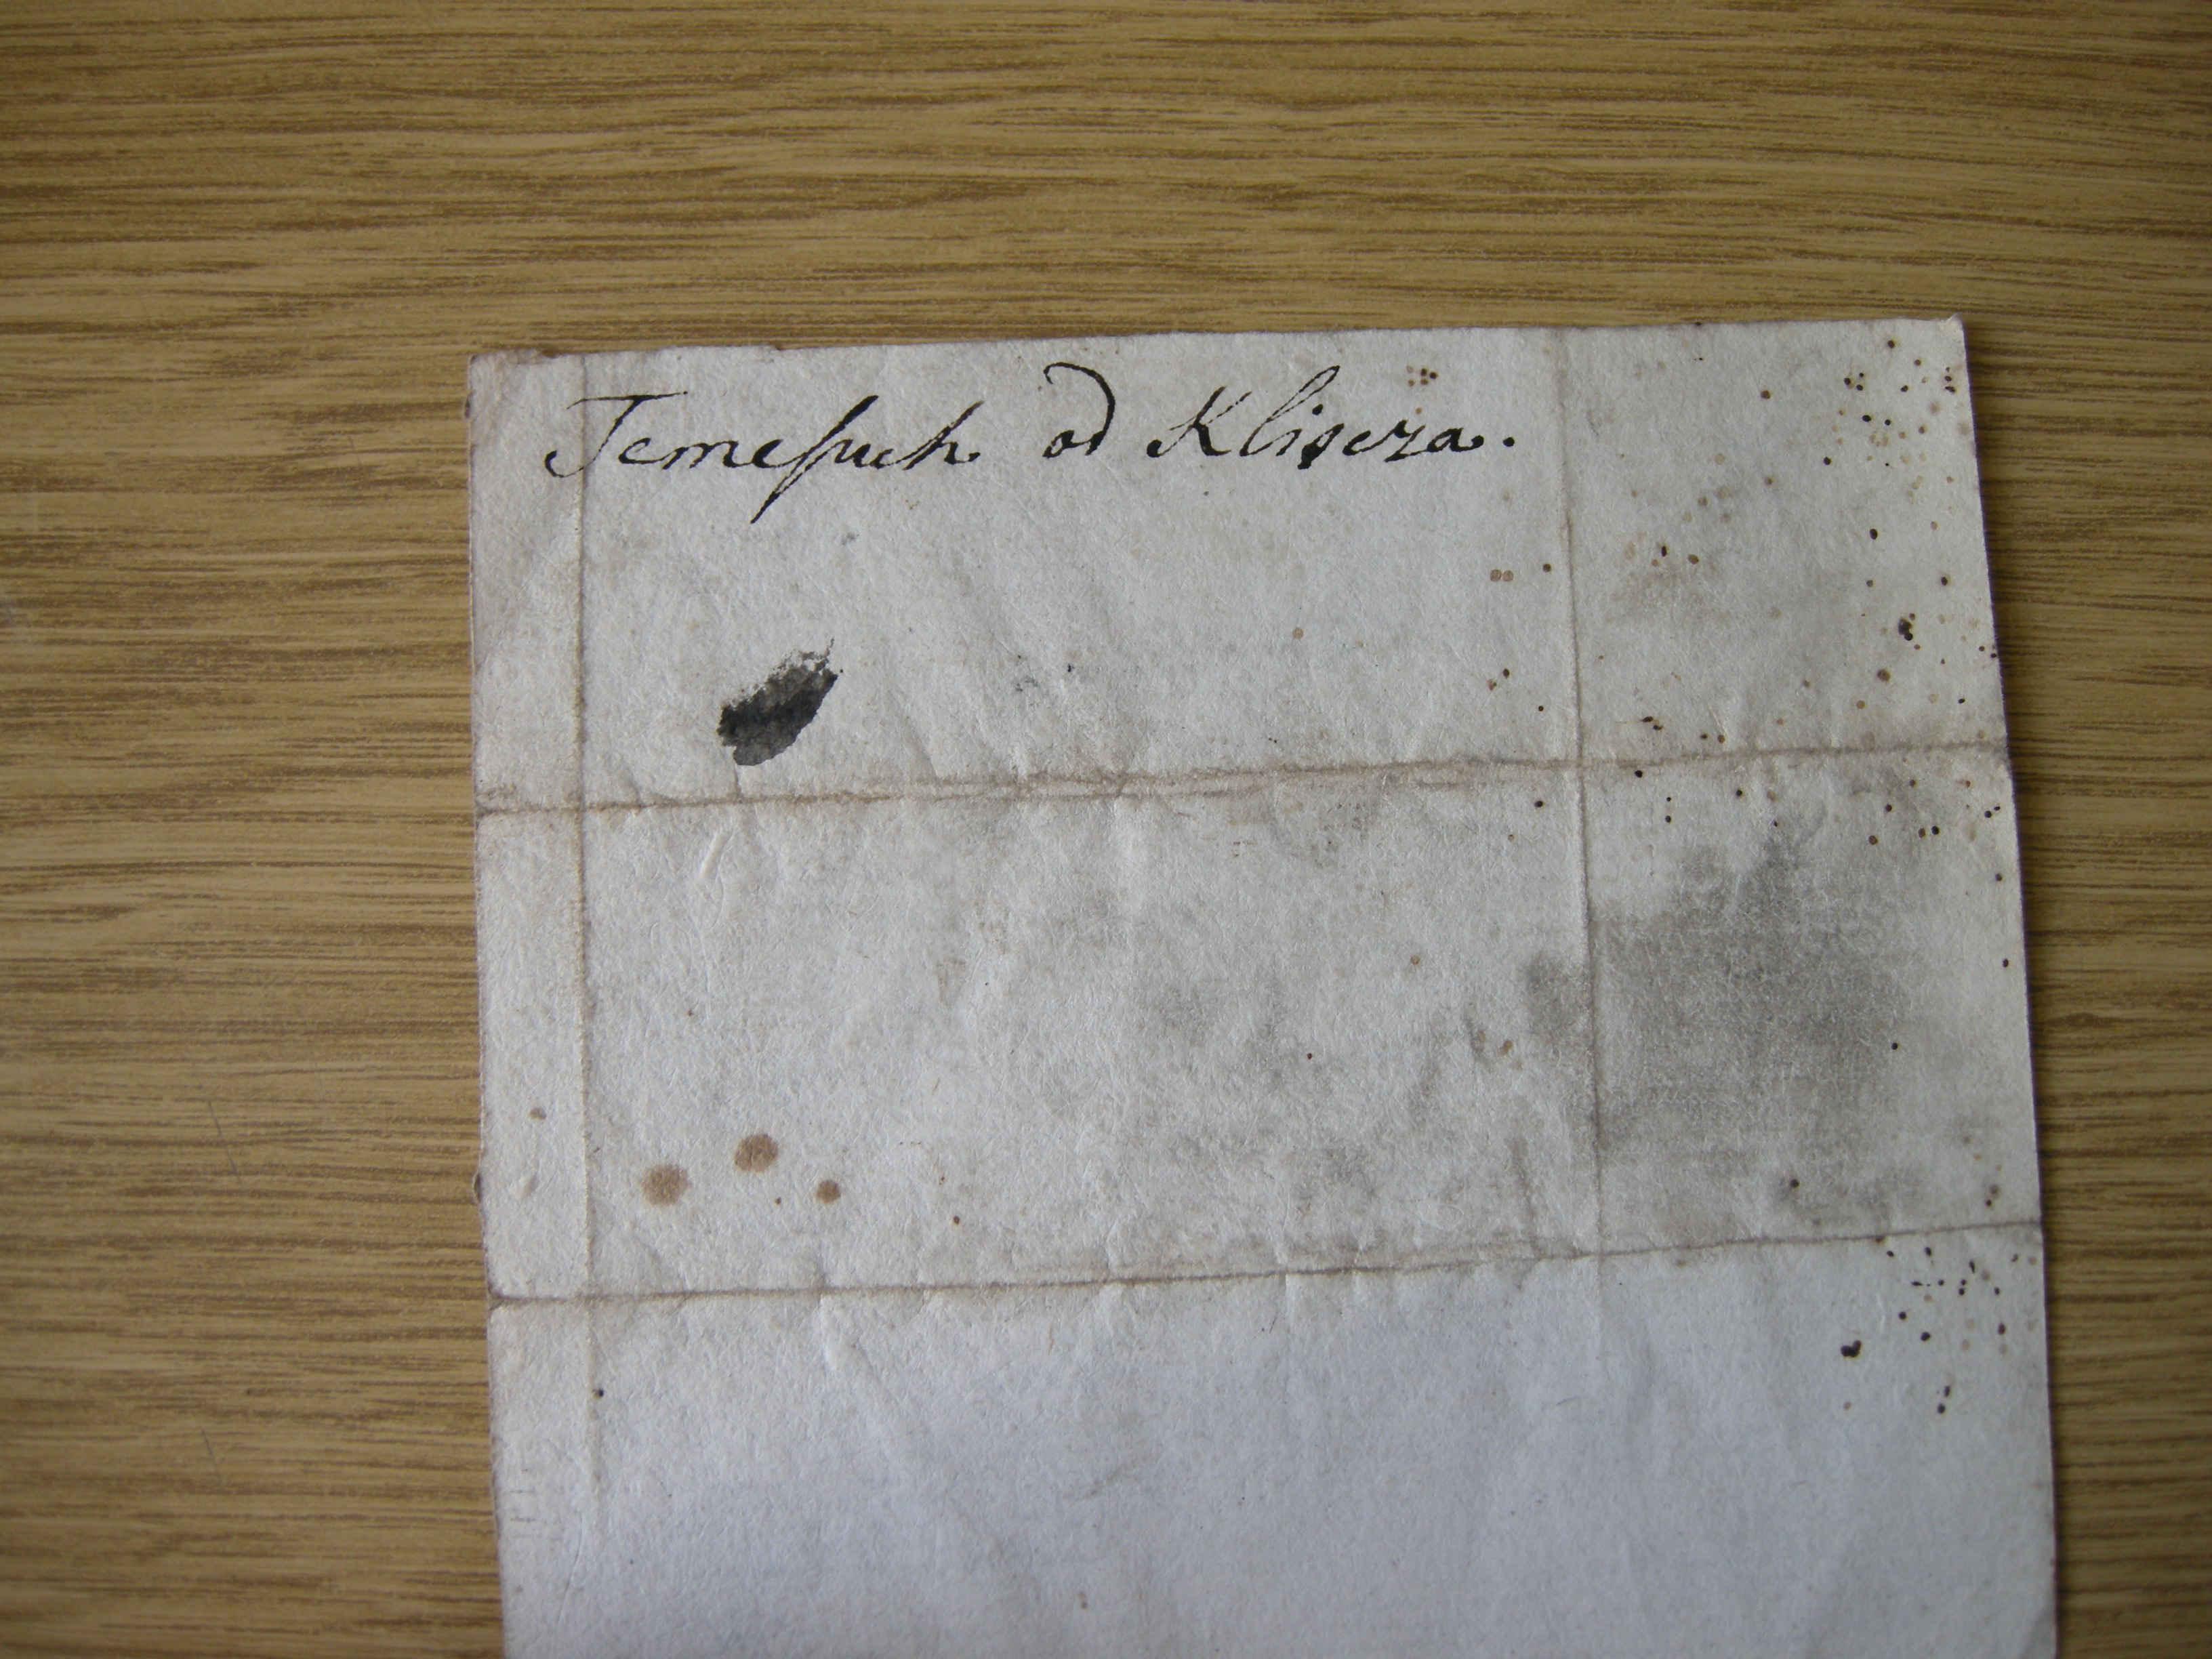 Temeſuch od Kliseza.